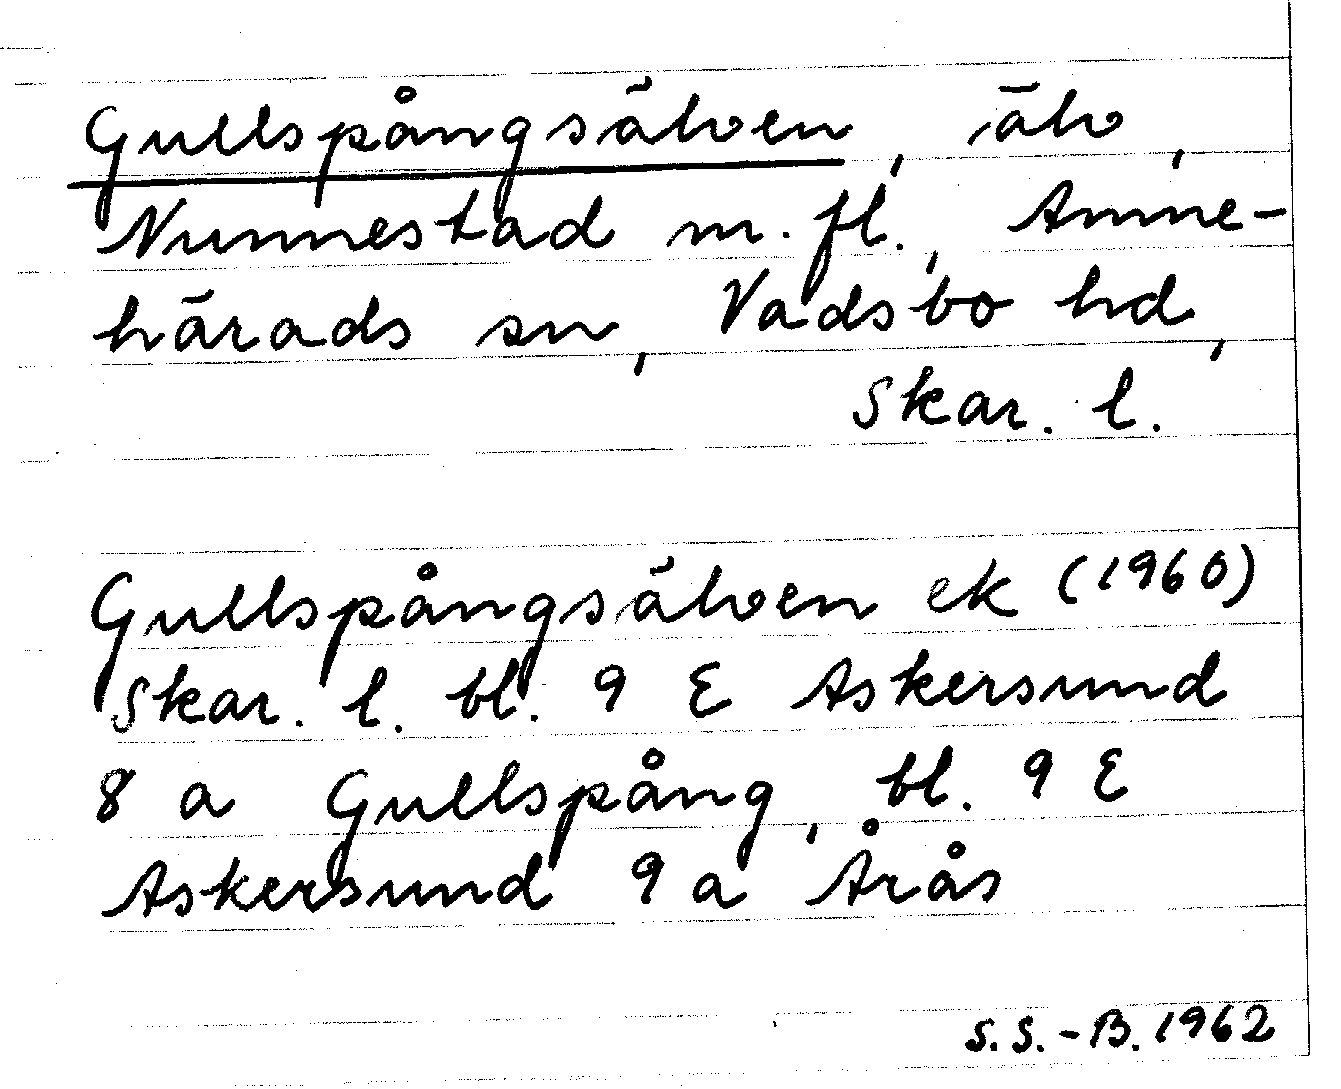 Gullspångsälven, älv,
Nunnestad m. fl., Amne-
härads sn, Vadsbo hd,
Skar. l.
Gullspångsälven ek (1960)
Skar. l. bl. 9 E Askersund
8 a Gullspång, bl. 9 E
Askersund 9 a Årås
S.S.-B. 1962